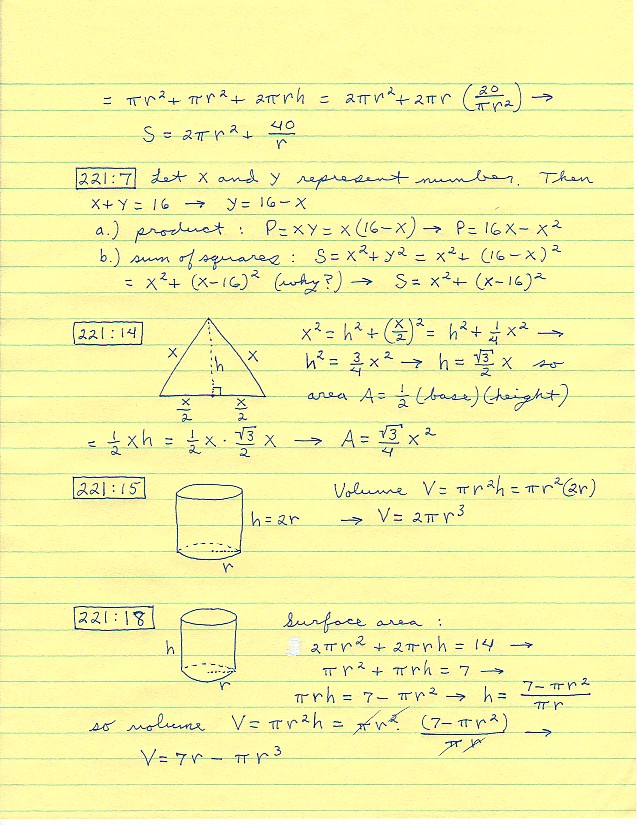 = πr² + πr² + 2πrh = 2πr² + 2πr (20/πr²) →
S = 2πr² + 40/r
221:7 Let X and Y represent number. Then
X+Y = 16 → Y = 16-X
a.) product : P = XY = X(16-X) → P = 16X - X²
b.) sum of squares : S = X²+Y² = X² + (16-X)²
= X² + (X-16)² (why?) → S = X² + (X-16)²
221:14 X² = h² + (X/2)² = h² + 1/4 X² →
X X h h² = 3/4 X² → h = √3/2 X so
X/2 X/2 area A = 1/2 (base)(height)
= 1/2 Xh = 1/2 X · √3/2 X → A = √3/4 X²
221:15 Volume V = πr²h = πr²(2r)
h = 2r → V = 2πr³
r
221:18 Surface area :
h 2πr² + 2πrh = 14 →
πr² + πrh = 7 →
r πrh = 7 - πr² → h = 7-πr²/πr
so volume V = πr²h = πr² · (7-πr²)/πr →
V = 7r - πr³